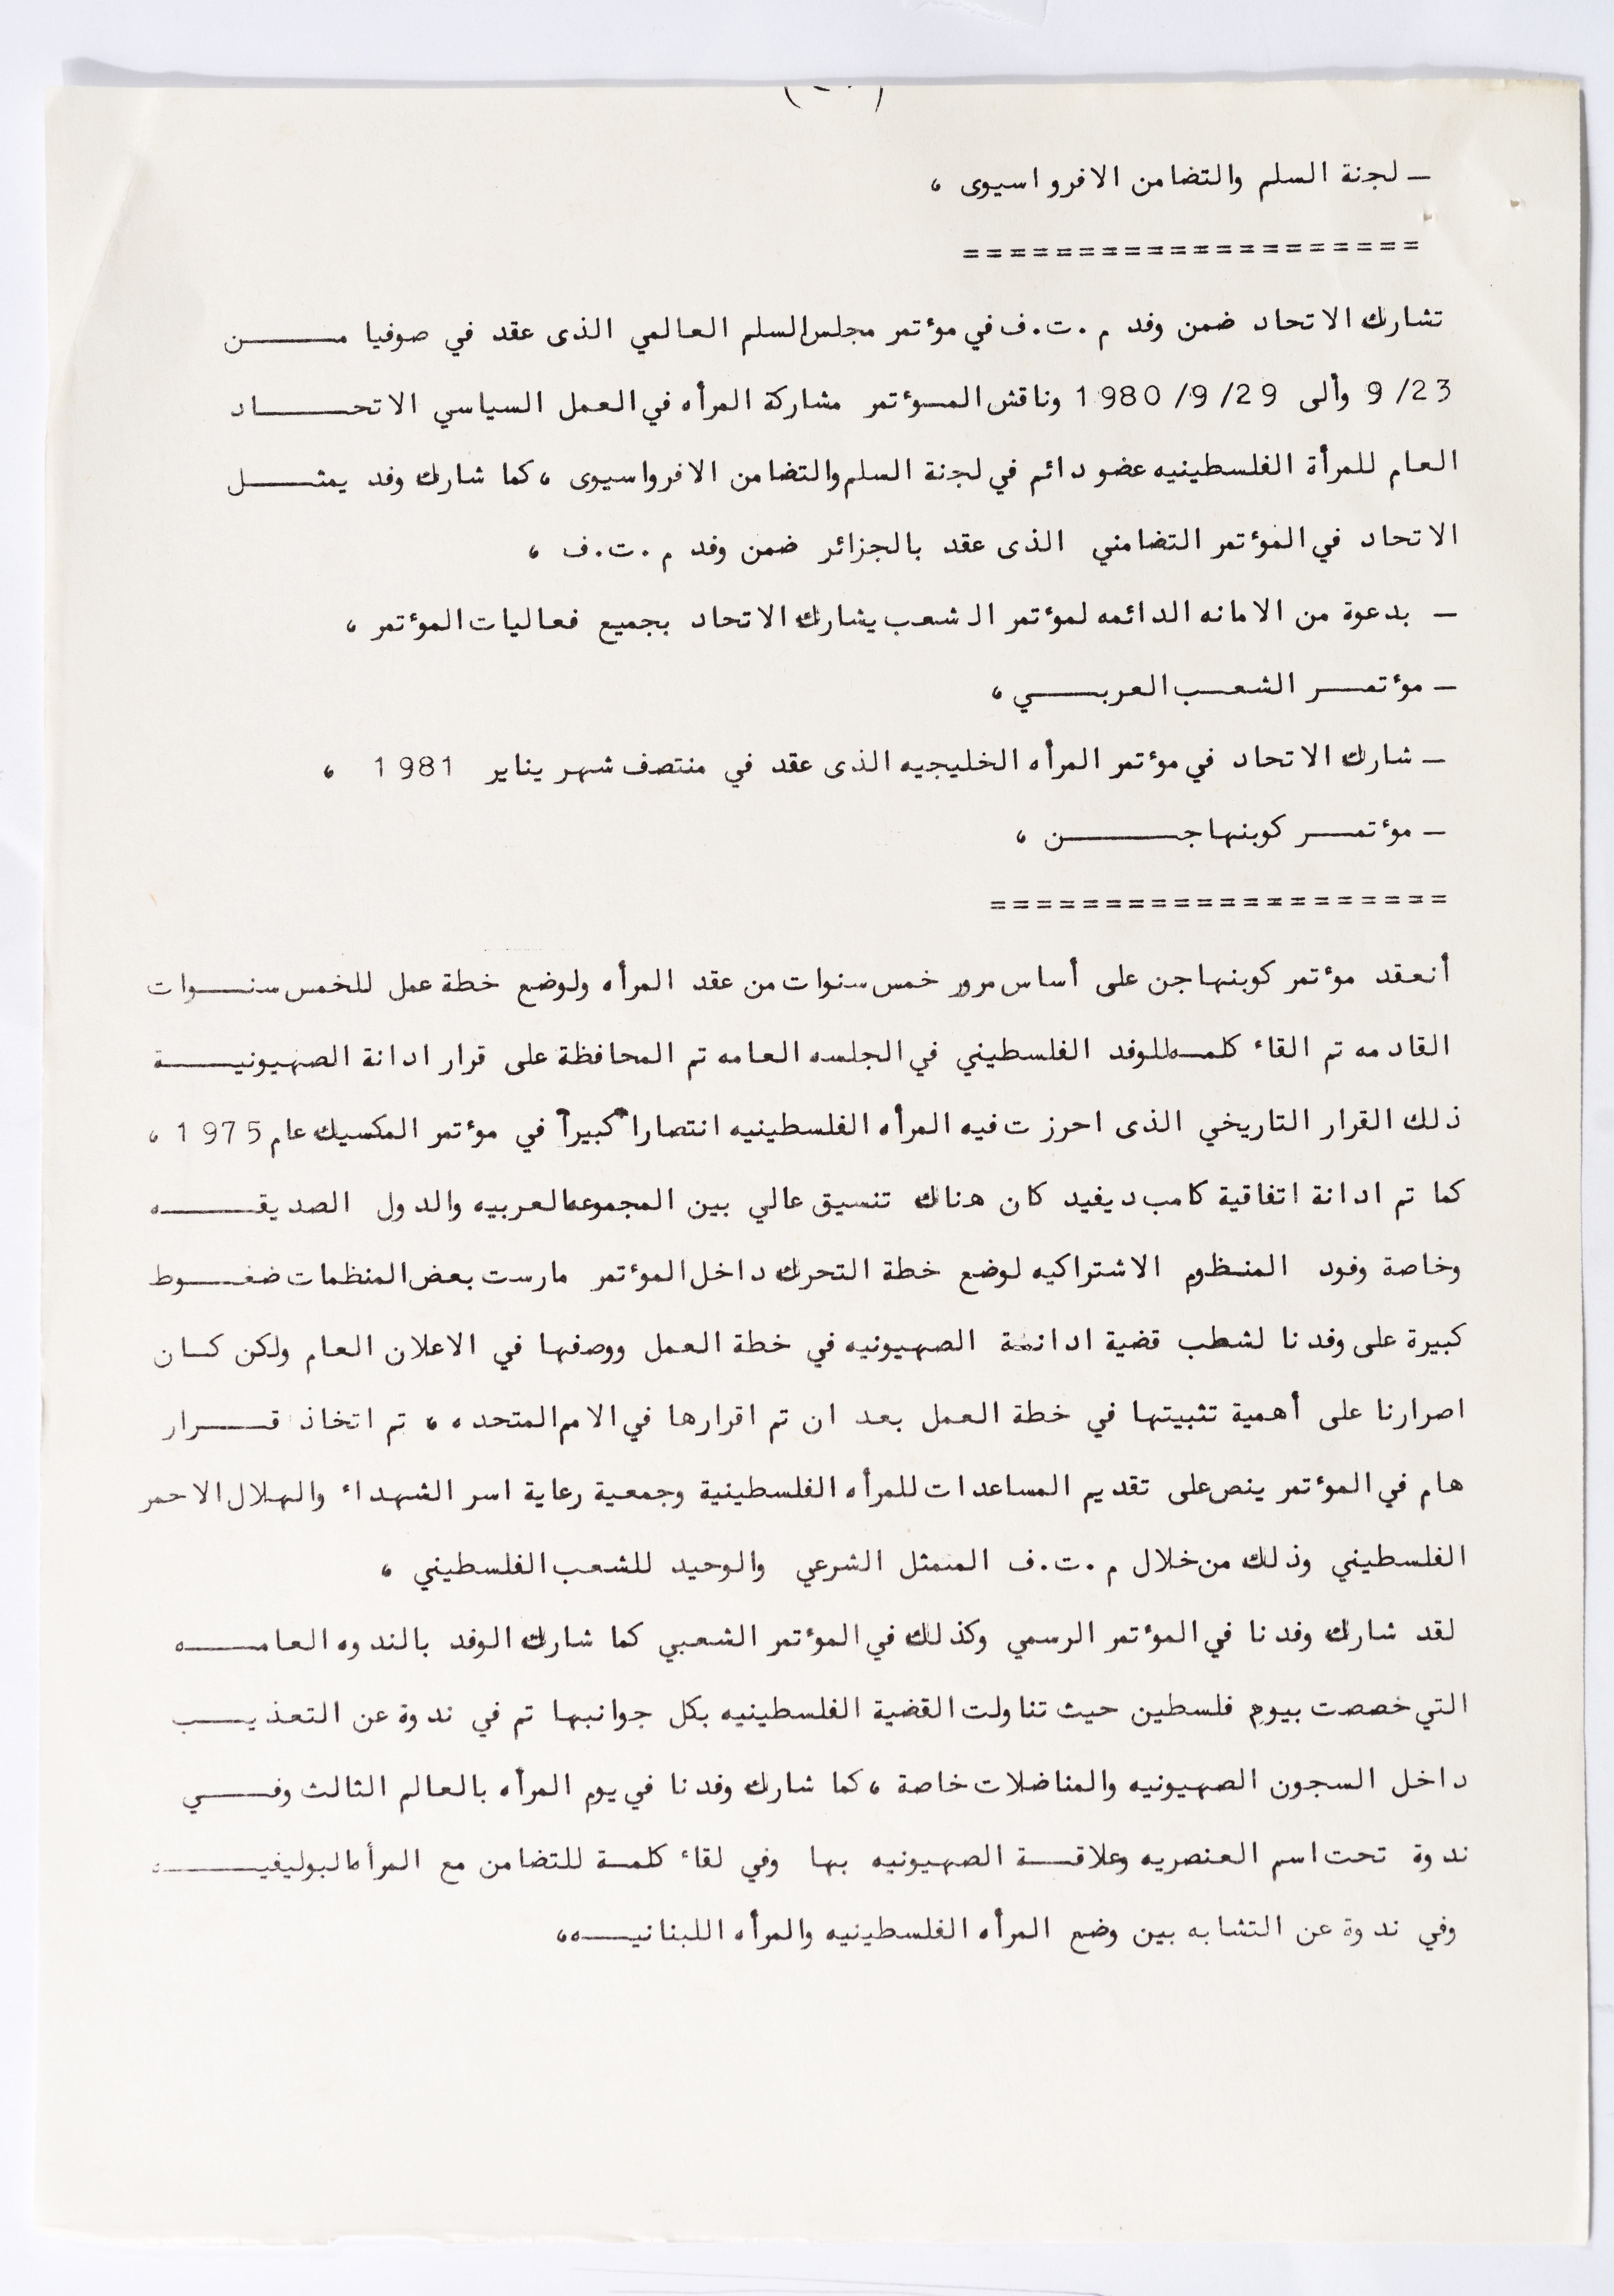 — لجنة السلم والتضامن الافرواسيوى ،
====================
تشارك الاتحاد ضمن وفد م .ت.ف في مؤتمر مجلس السلم العالمي الذى عقد في صوفيا مـــــن
9/23 وألى 1980/9/29 وناقش المـؤتمر مشاركة المرأه في العمل السياسي الاتحـــــاد
العام للمرأة الفلسطينيه عضو دائم في لجنة السلم والتضامن الافرواسيوى ، كما شارك وفد يمثـــل
الاتحاد في المؤتمر التضامني الذى عقد بالجزائر ضمن وفد م .ت.ف ،
— بدعوة من الامانه الدائمه لمؤتمر الشعب يشارك الاتحاد بجميع فعاليات المؤتمر ،
— مؤتمـــر الشعـــب العربـــــي ،
— شارك الاتحاد في مؤتمر المرأه الخليجيه الذى عقد في منتصف شهر يناير 1981 ،
— مؤتمـــر كوبنهاجـــــن ،
====================
أنعقد مؤتمر كوبنهاجن على أساس مرور خمس سنوات من عقد المرأه ولوضع خطة عمل للخمس سنـــوات
القادمه تم القاء كلمـه للوفد الفلسطيني في الجلسه العامه تم المحافظة على قرار ادانة الصهيونيـــــة
ذلك القرار التاريخي الذى احرزت فيه المرأه الفلسطينيه انتصاراً كبيراً في مؤتمر المكسيك عام 1975 ،
كما تم ادانة اتفاقية كامب ديفيد كان هناك تنسيق عالي بين المجموعه العربيه والدول الصديقـــــه
وخاصة وفود المنظوم الاشتراكيه لوضع خطة التحرك داخل المؤتمر مارست بعض المنظمات ضغـــوط
كبيرة على وفدنا لشطب قضية ادانـة الصهيونيه في خطة العمل ووصفها في الاعلان العام ولكن كـــان
اصرارنا على أهمية تثبيتها في خطة العمل بعد ان تم اقرارها في الامم المتحده ، تم اتخاذ قـــرار
هام في المؤتمر ينص على تقديم المساعدات للمرأه الفلسطينية وجمعية رعاية اسر الشهداء والهلال الاحمر
الفلسطيني وذلك من خلال م .ت.ف الممثل الشرعي والوحيد للشعب الفلسطيني ،
لقد شارك وفدنا في المؤتمر الرسمي وكذلك في المؤتمر الشعبي كما شارك الوفد بالندوه العامـــــه
التي خصصت بيوم فلسطين حيث تناولت القضية الفلسطينيه بكل جوانبها تم في ندوة عن التعذيـــب
داخل السجون الصهيونيه والمناضلات خاصة ، كما شارك وفدنا في يوم المرأه بالعالم الثالث وفـــــي
ندوة تحت اسم العنصريه وعلاقـــة الصهيونيه بها وفي لقاء كلمـة للتضامن مع المرأه البوليفيـــــه
وفي ندوة عن التشابه بين وضع المرأه الفلسطينيه والمرأه اللبنانيـــه ،